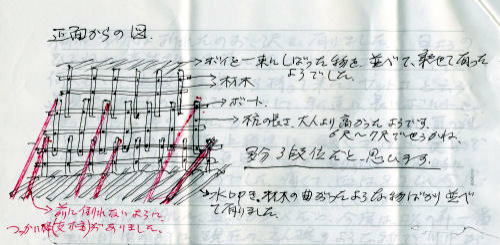 正面からの図.
ボイと一束にしばった物を並べて、乗せて有った
ようでした。
材木
ボート.
杭の長さ、大人より高かったようです。
6尺〜7尺でせうかね。
多分3段位だと、思います。
水叩き、材木の曲がったような物ばかり並べ
て有りました。
前に倒れないように
つっかい棒(支柱)がありました。